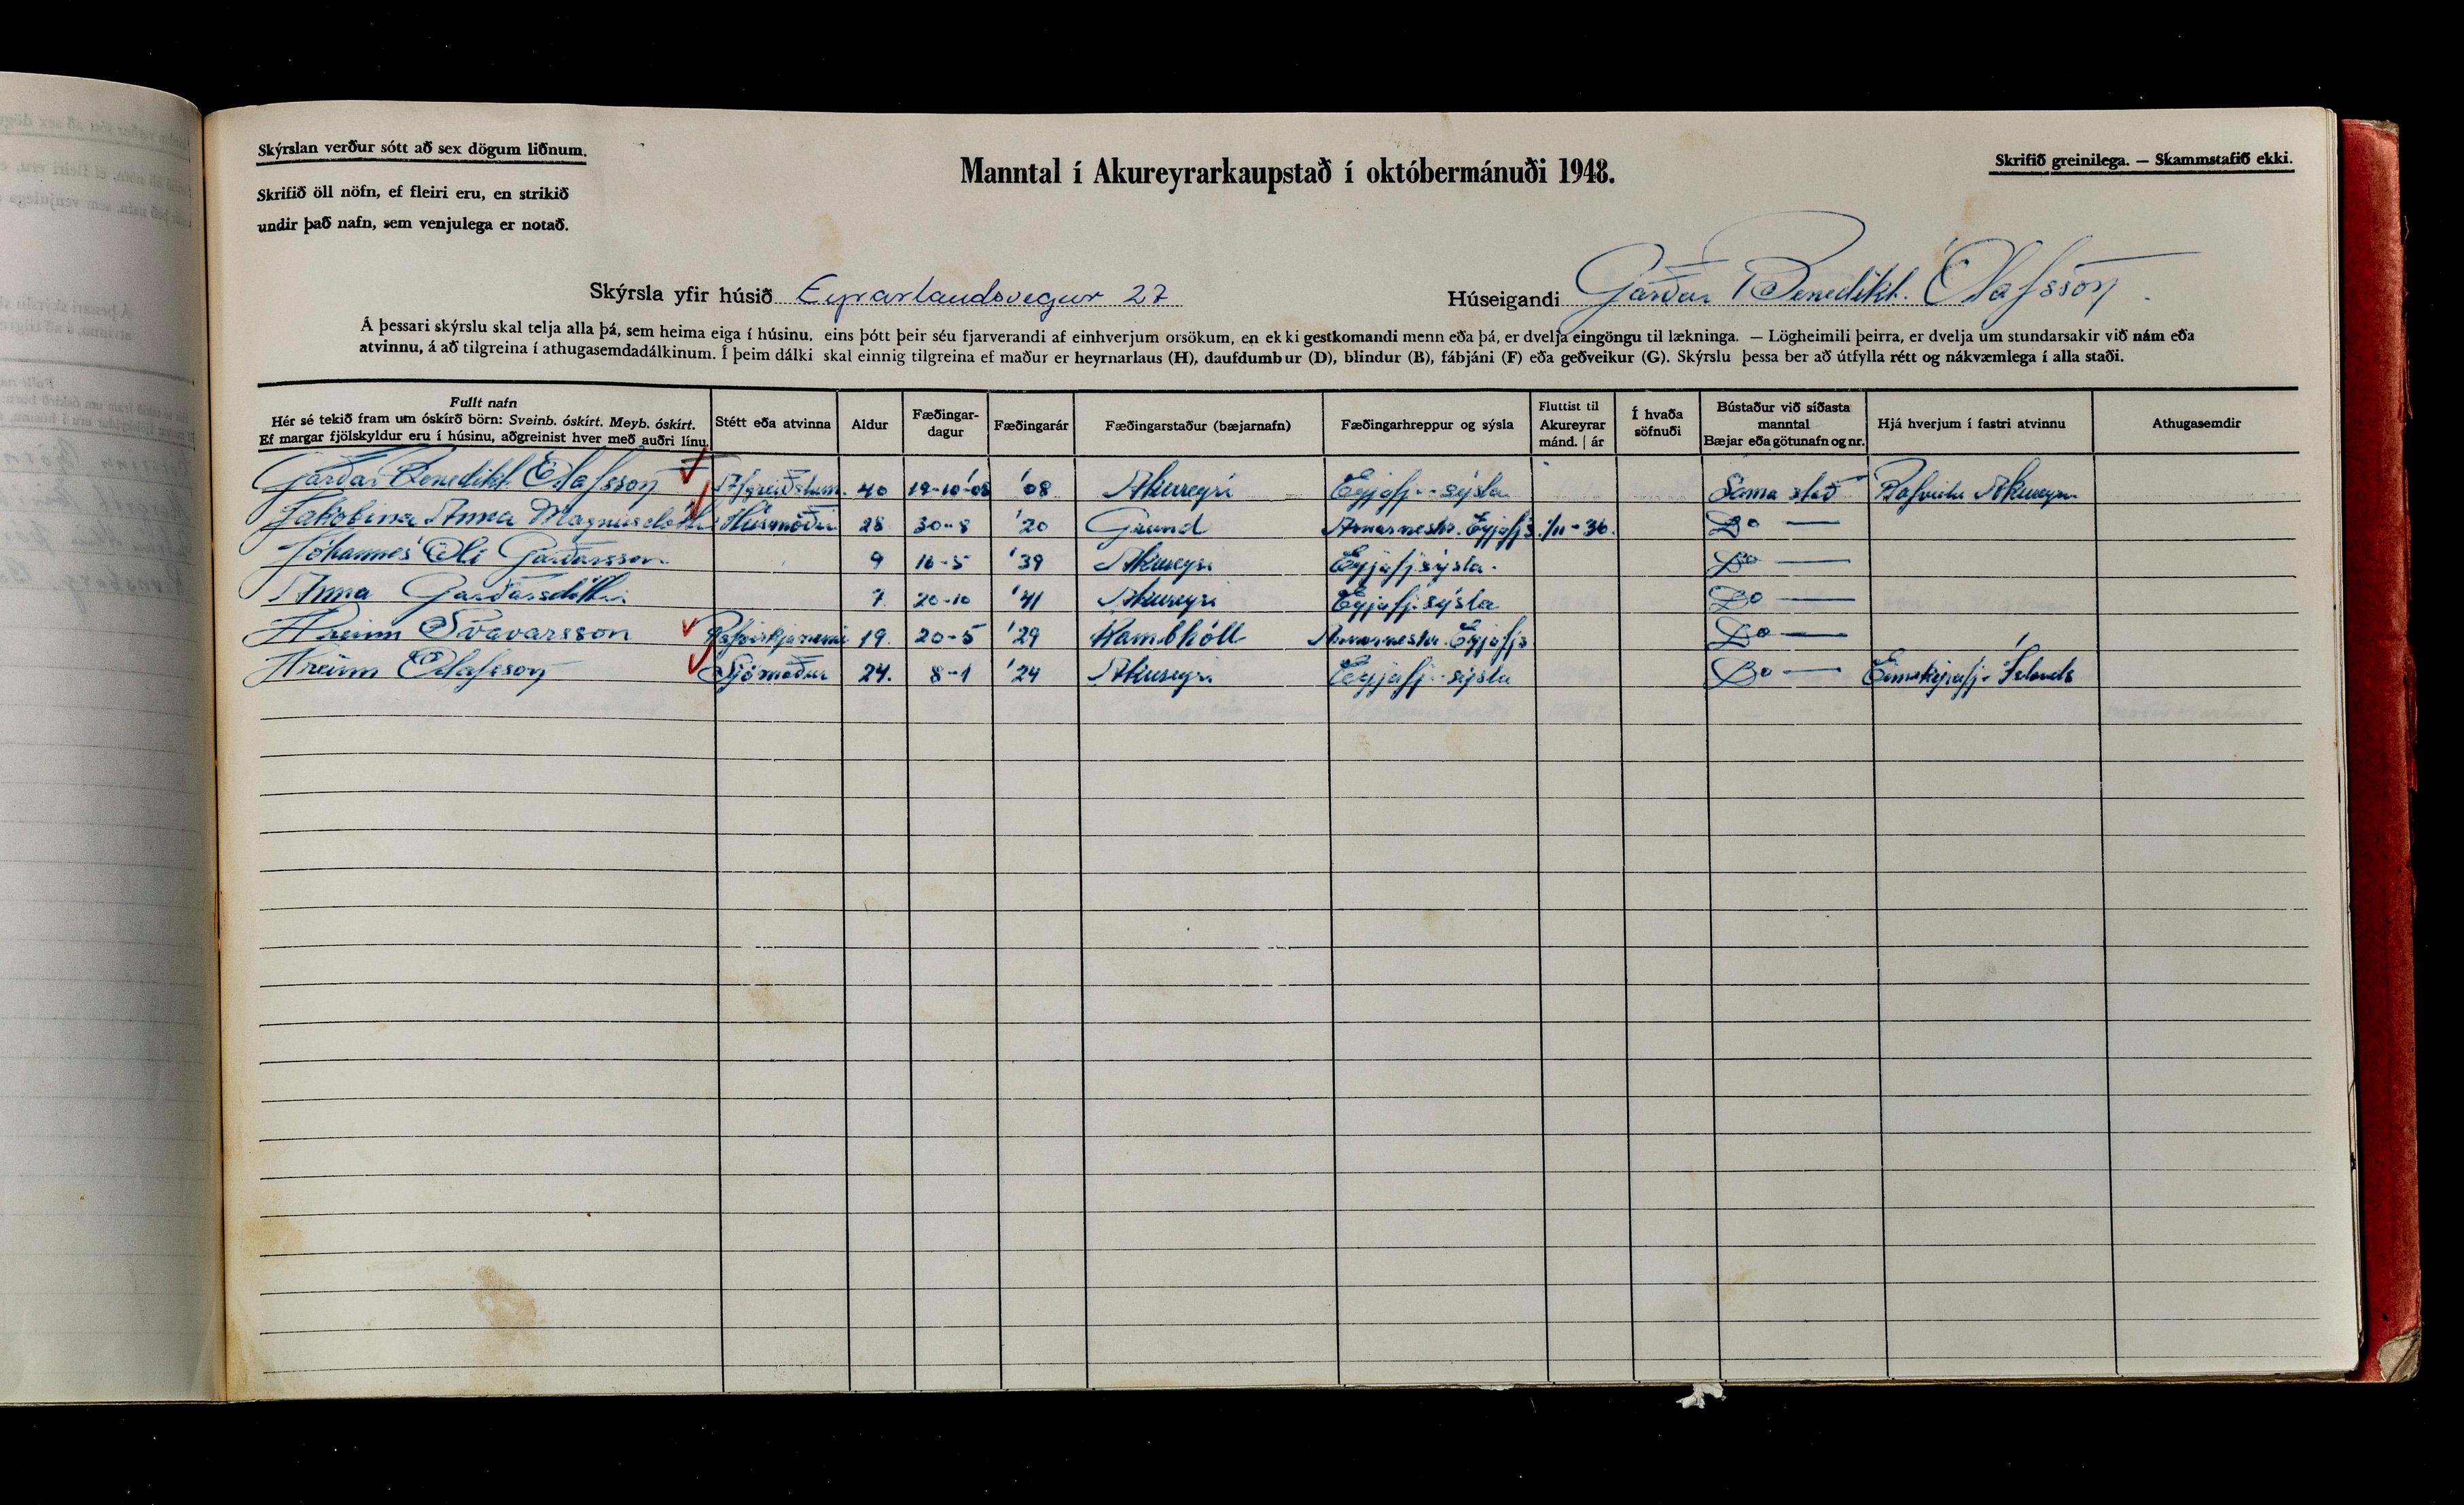 Skýrslan verður sótt að sex dögum liðnum.
Skrifið öll nöfn, ef fleiri eru, en strikið
undir það nafn, sem venjulega er notað.
Manntal í Akureyrarkaupstað í októbermánuði 1948.
Skrifið greinilega. — Skammstafið ekki.
Skýrsla yfir húsið Eyrarlandsvegur 27
Húseigandi Garðar Benedikt Ólafsson.
Á þessari skýrslu skal telja alla þá, sem heima eiga í húsinu, eins þótt þeir séu fjarverandi af einhverjum orsökum, en ekki gestkomandi menn eða þá, er dvelja eingöngu til lækninga. — Lögheimili þeirra, er dvelja um stundarsakir við nám eða
atvinnu, á að tilgreina í athugasemdadálkinum. Í þeim dálki skal einnig tilgreina ef maður er heyrnarlaus (H), daufdumbur (D), blindur (B), fábjáni (F) eða geðveikur (G). Skýrslu þessa ber að útfylla rétt og nákvæmlega í alla staði.
Fullt nafn
Hér sé tekið fram um óskírð börn: Sveinb. óskírt. Meyb. óskírt.
Ef margar fjölskyldur eru í húsinu, aðgreinist hver með auðri línu.
Stétt eða atvinna
Aldur
Fæðingar-
dagur
Fæðingarár
Fæðingarstaður (bæjarnafn)
Fæðingarhreppur og sýsla
Fluttist til
Akureyrar
mánd. | ár
Í hvaða
söfnuði
Bústaður við síðasta
manntal
Bæjar eða götunafn og nr.
Hjá hverjum í fastri atvinnu
Athugasemdir
Garðar Benedikt Ólafsson Afgreiðslum. 40 19-10-'08 '08 Akureyri Eyjafj.-sýsla Sama stað Rafveitu Akureyrar
Jakobína Anna Magnúsdóttir Húsmóðir 28 30-8 '20 Grund Arnarneshr. Eyjafjs. 1/11-36. Do —
Jóhannes Óli Garðarsson 9 16-5 '39 Akureyri Eyjafjsýsla. Do —
Anna Garðarsdóttir 7 20-10 '41 Akureyri Eyjafj.sýsla Do —
Hreinn Svavarsson Rafvirkjanemi 19. 20-5 '29 Kambhóll Arnarneshr. Eyjafjs Do —
Hreinn Ólafsson Sjómaður 24. 8-1 '24 Akureyri Eyjafj.-sýsla Do — Eimskipafj. Íslands